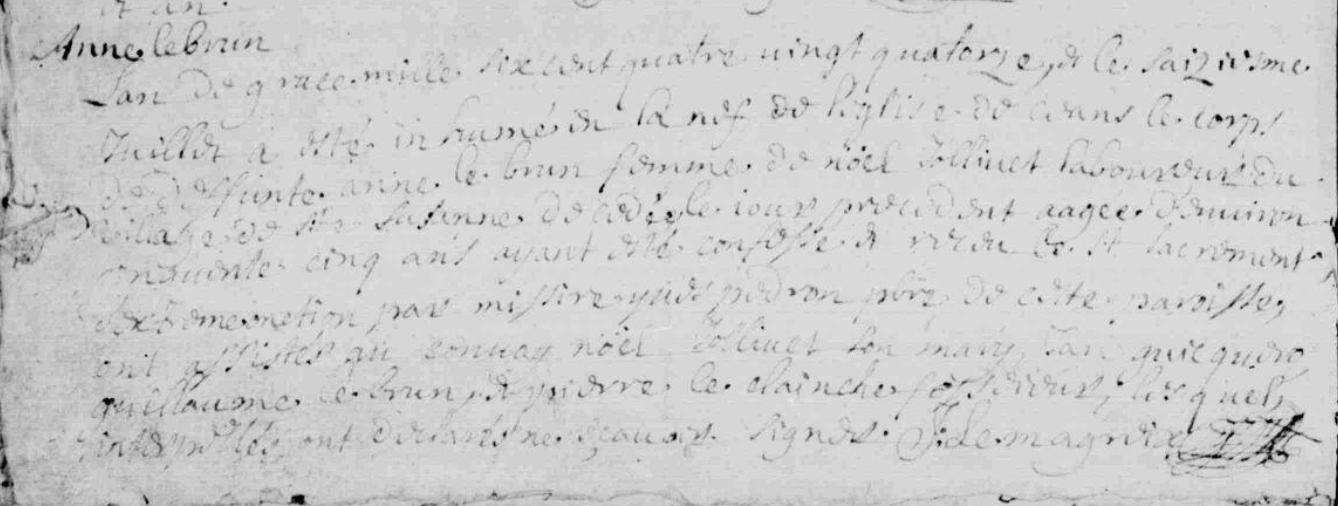 et an.
Anne lebrun
Lan de grace mille six cent quatre vingt quatorze, & le saiziesme
Juillet a esté inhumé en la nef de leglise de ceans le corps
de deffunte anne le brun femme de nöel Jollivet laboureur du
village de ste Susanne decedée le iour precedent aagee denviron
cinquente cinq ans ayant esté confesse & receu le st sacrement
dextremeonction par missire yves pedron pbre de cette paroisse,
ont assistés au convoy nöel Jollivet son mary, Jan guicquero
guillaume le brun, & pierre le clainche fossoieur, lesquels
interpellés ont declarés ne scavoir signer. J: Lemagueux